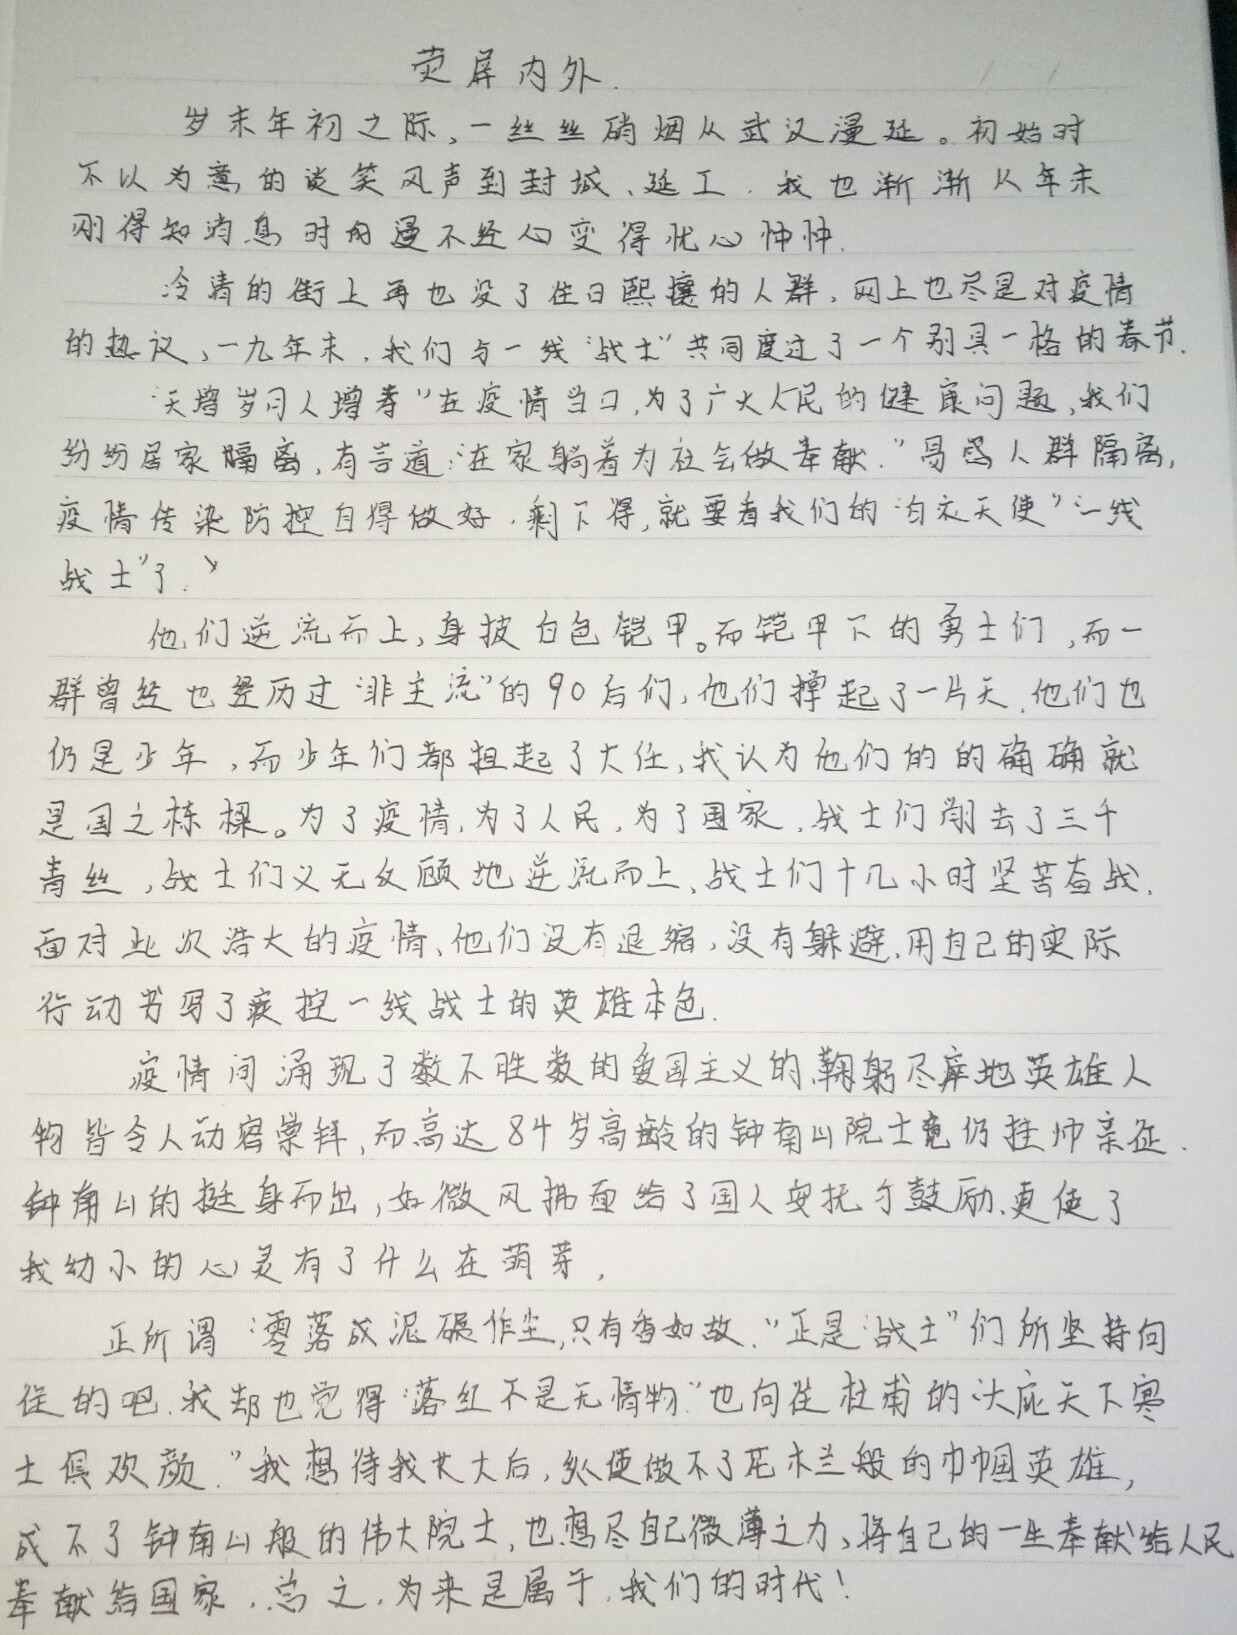 荧屏内外.
岁末年初之际,一丝丝硝烟从武汉漫延。初始时
不以为意的谈笑风声到封城、延工.我也渐渐从年末
刚得知消息时的漫不经心变得忧心忡忡.
冷清的街上再也没了往日熙攘的人群,网上也尽是对疫情
的热议,一九年末,我们与一线“战士”共同度过了一个别具一格的春节.
“天增岁月人增寿”在疫情当口,为了广大人民的健康问题,我们
纷纷居家隔离,有言道:“在家躺着为社会做奉献.”易感人群隔离,
疫情传染防控自得做好.剩下得,就要看我们的“白衣天使”“一线
战士”了.
他们逆流而上,身披白色铠甲。而铠甲下的勇士们,而一
群曾经也经历过“非主流”的90后们,他们撑起了一片天.他们也
仍是少年,而少年们都担起了大任,我认为他们的的确确就
是国之栋梁。为了疫情,为了人民,为了国家,战士们剃去了三千
青丝,战士们义无反顾地逆流而上、战士们十几小时坚苦奋战.
面对此次浩大的疫情、他们没有退缩,没有躲避,用自己的实际
行动书写了疾控一线战士的英雄本色.
疫情间涌现了数不胜数的爱国主义的,鞠躬尽瘁地英雄人
物皆令人动容崇拜,而高达84岁高龄的钟南山院士竟仍挂帅亲征.
钟南山的挺身而出,如微风拂面给了国人安抚与鼓励,更使了
我幼小的心灵有了什么在萌芽,
正所谓“零落成泥碾作尘,只有香如故.”正是“战士”们所坚持向
往的吧.我却也觉得“落红不是无情物”也向往杜甫的“大庇天下寒
士俱欢颜”我想待我长大后,纵使做不了花木兰般的巾帼英雄,
成不了钟南山般的伟大院士,也想尽自己微薄之力、将自己的一生奉献给人民
奉献给国家.总之,为来是属于,我们的时代!